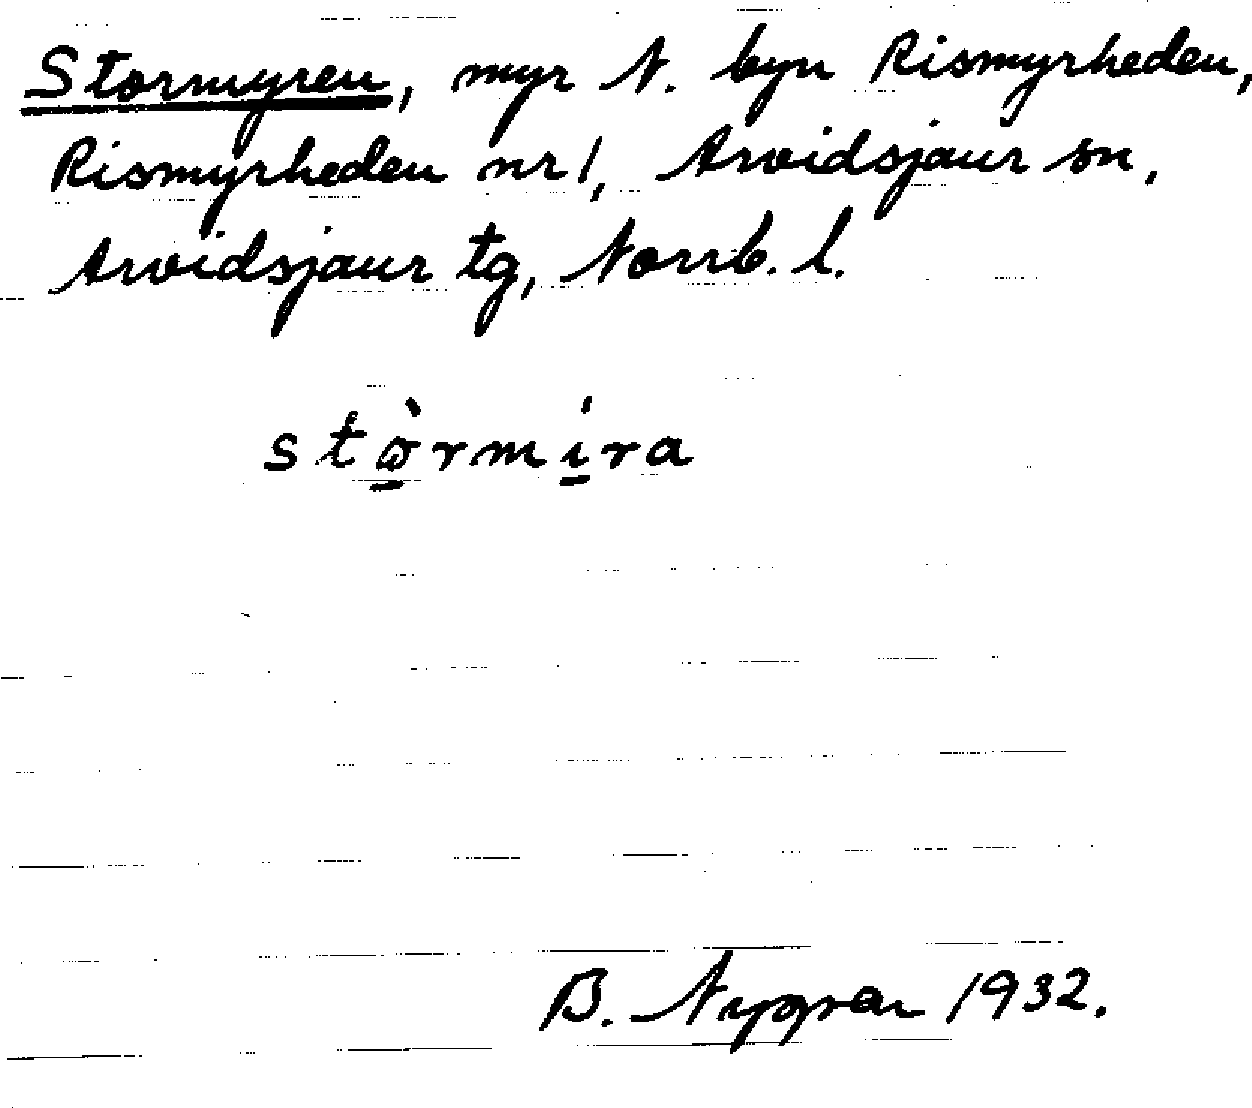 Stormyren, myr N. byn Rismyrheden,
Rismyrheden nr 1, Arvidsjaur sn,
Arvidsjaur tg, Norrb. l.
stò̱rmí̱ra
B. Nygren 1932.